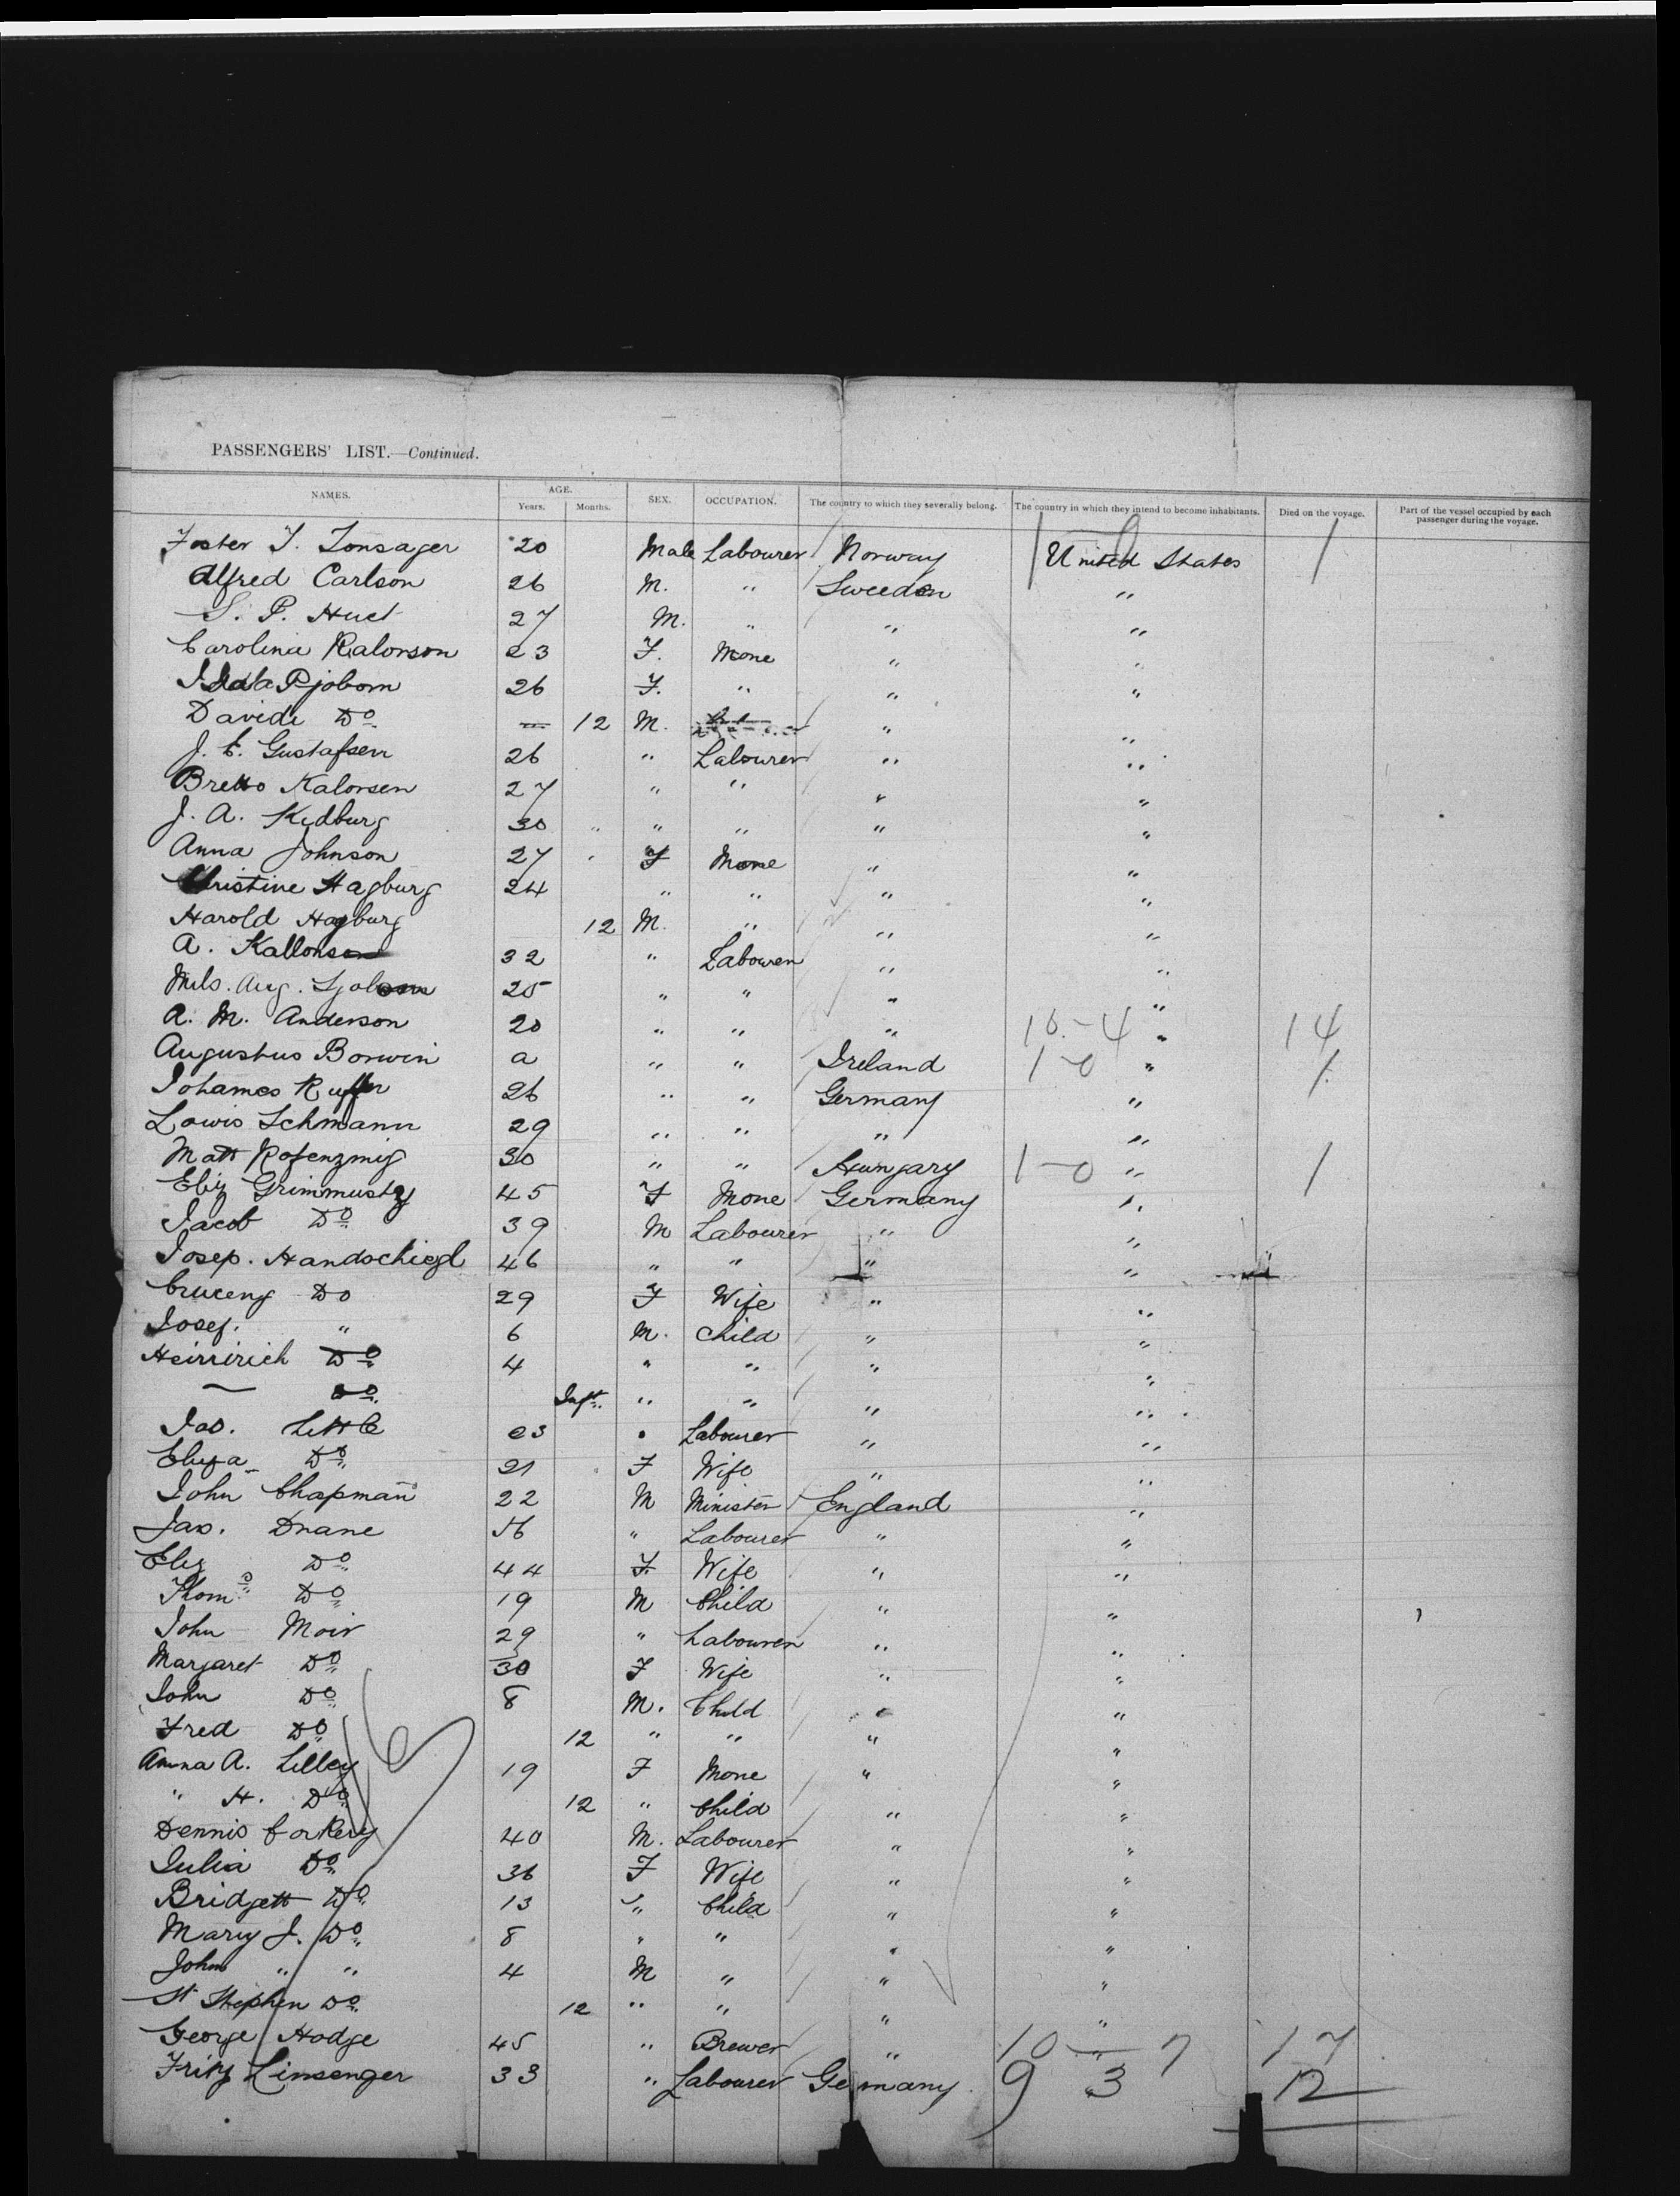 PASSENGERS' LIST.—Continued.
NAMES. AGE. Years. Months. SEX. OCCUPATION. The country to which they severally belong. The country in which they intend to become inhabitants. Died on the voyage. Part of the vessel occupied by each passenger during the voyage.
Foster T. Tonsager 20 Male Labourer Norway United States 1
Alfred Carlson 26 M. " Sweeden "
S. P. Huet 27 M. " " "
Carolina Kalonson 23 F. None " "
Ida Pjobom 26 F. " " "
Davide Do — 12 M. " "
J. E. Gustafsen 26 " Labourer " "
Bretto Kalonsen 27 " " " "
J. A. Kedburg 30 " " " " "
Anna Johnson 27 " F None " "
Christine Hagburg 24 " " " "
Harold Hagburg 12 M. " " "
A. Kallonson 32 " Labourer " "
Nils. Aug. 25 " " " "
A. M. Anderson 20 " " " 10-4 " 14
Augustus Borwin a " " Ireland 1-0 " 1
Johames Ruffer 26 " " Germany "
Lowis Schmann 29 " " " "
Matt Rosenzmig 30 " " Hungary 1-0 " 1
Eliz Grimmustz 45 F None Germany "
Jacob Do 39 M Labourer " "
Josep. Handschiegl 46 " " " "
Do 29 F Wife " "
Josef. " 6 M. Child " "
Heinrich Do 4 " " " "
— Do Inft. " " " "
Jas. Little 23 " Labourer " "
Eliza Do 21 F Wife " "
John Chapman 22 M Minister England "
Jas. Drane 56 " Labourer " "
Eliz Do 44 F. Wife " "
Thoms Do 19 M Child " "
John Moir 29 " Labourer " "
Margaret Do 30 F Wife " "
John Do 8 M. Child " "
Fred Do 12 " " " "
Anna A. Lilley 19 F None " "
" H. Do 12 " Child " "
Dennis Corkery 40 M. Labourer " "
Julia Do 36 F Wife " "
Bridgett Do 13 " Child " "
Mary J. Do 8 " " " "
John " " 4 M " " "
St Stephen Do 12 " " " "
George Hodge 45 " Brewer " 10 — 7 17
Fritz Linsenger 33 " Labourer Germany 9 3 12